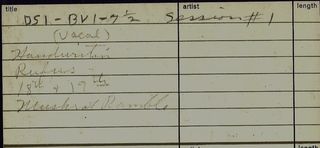 title artist length
DS1-BV1-7½ Session #1
(Vocal)
Handwritin
Rufus
18th & 19th
Muskrat Ramble